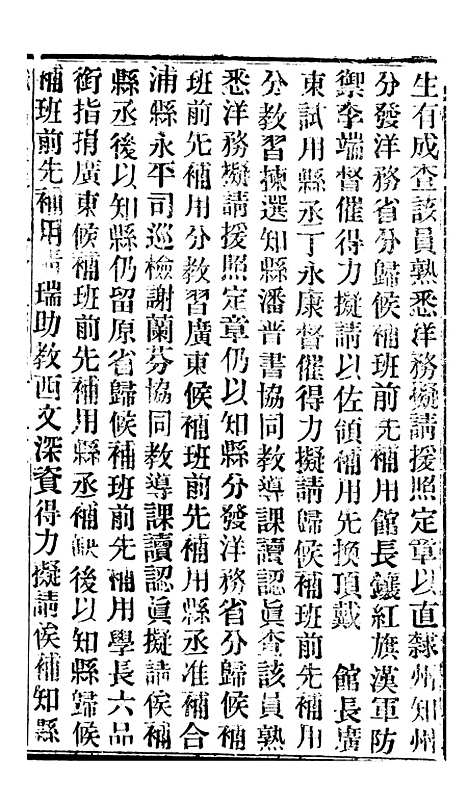 生有成查該員熟悉洋務擬請援照定章以直隸州知州
分發洋務省分歸候補班前先補用館長鑲紅旗漢軍防
禦李端督催得力擬請以佐領補用先換頂戴　館長廣
東試用縣丞丁永康督催得力擬請歸候補班前先補用
分教習揀選知縣潘晋書協同教導課讀認眞查該員熟
悉洋務擬請援照定章仍以知縣分發洋務省分歸候補
班前先補用分教習廣東候補班前先補用縣丞准補合
浦縣永平司巡檢謝蘭芬協同教導課讀認眞擬請俟補
縣丞後以知縣仍留原省歸候補班前先補用學長六品
銜指捐廣東候補班前先補用縣丞補缺後以知縣歸候
補班前先補用　瑞助敎西文深資得力擬請俟補知縣